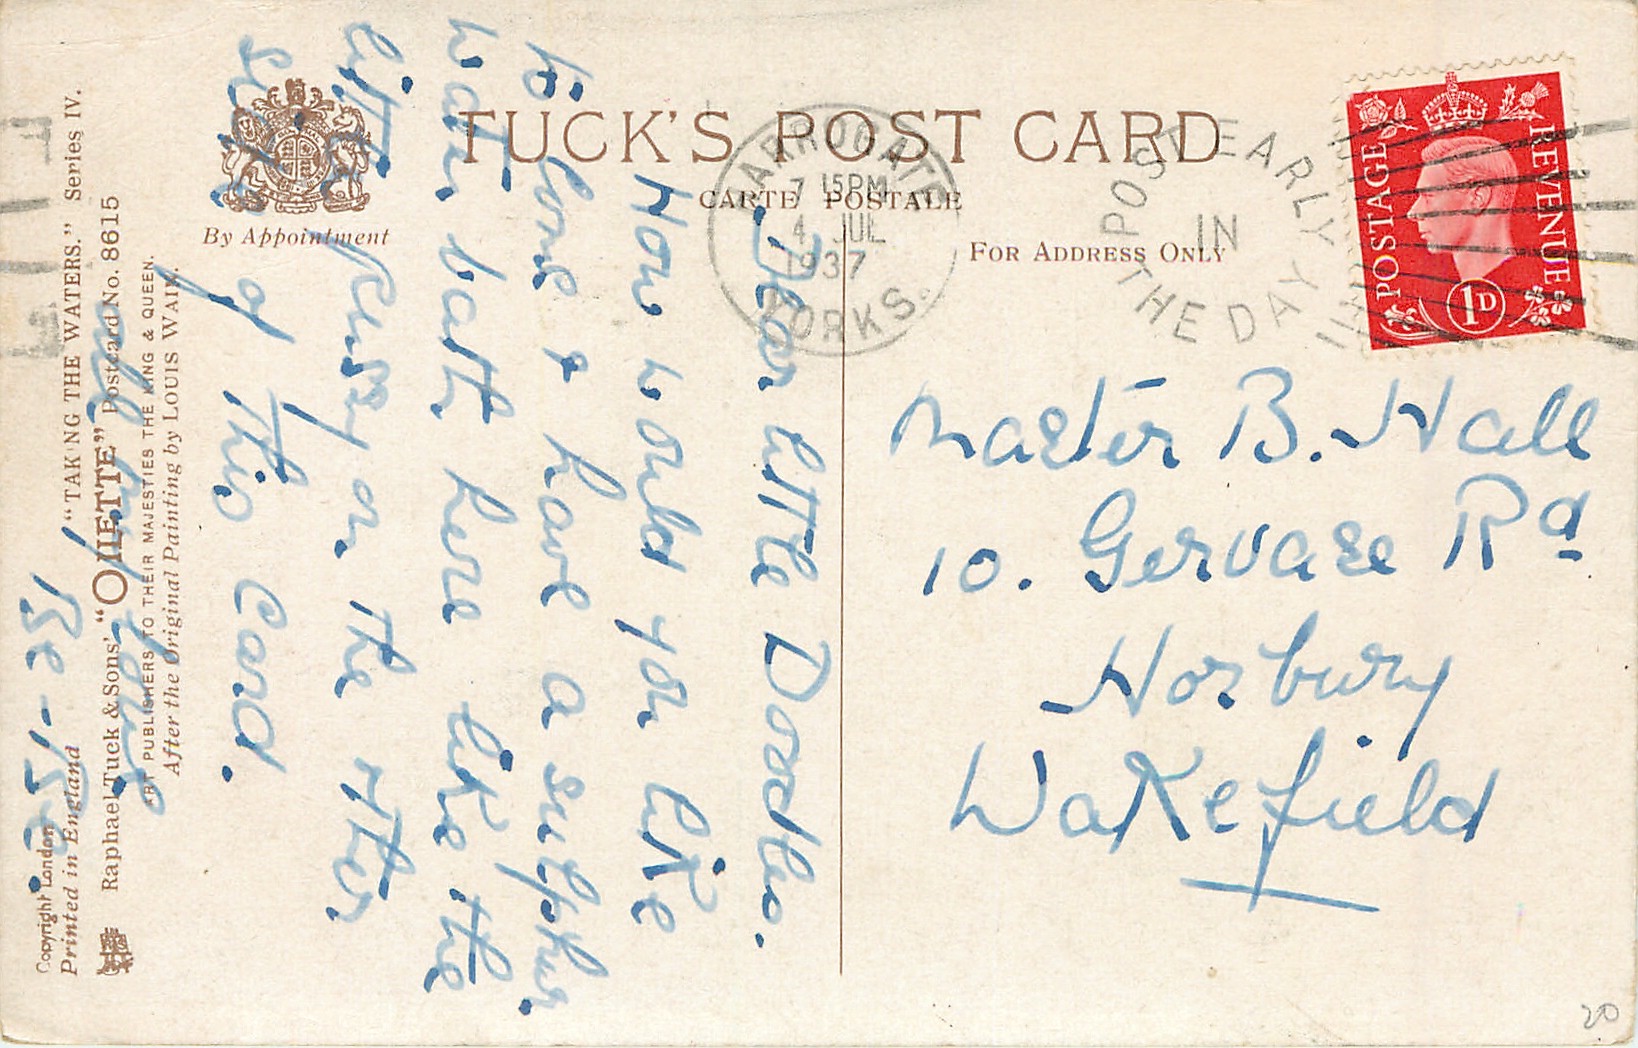 TUCK'S POST CARD
CARTE POSTALE
By Appointment
FOR ADDRESS ONLY
HARROGATE
7 15PM
4 JUL
1937
YORKS.
POST EARLY
IN
THE DAY
POSTAGE
REVENUE
1D
Dear little Doodles.
How would you like
to come & have a sulphur
water bath here like the
little pussy on the other
side of this card.
all my love
Be-Be.
Master B. Hall
10. Gervase Rd
Horbury
Wakefield
"TAKING THE WATERS." Series IV.
Raphael Tuck & Sons' "OILETTE" Postcard No. 8615
ART PUBLISHERS TO THEIR MAJESTIES THE KING & QUEEN.
After the Original Painting by LOUIS WAIN.
Copyright London
Printed in England
20